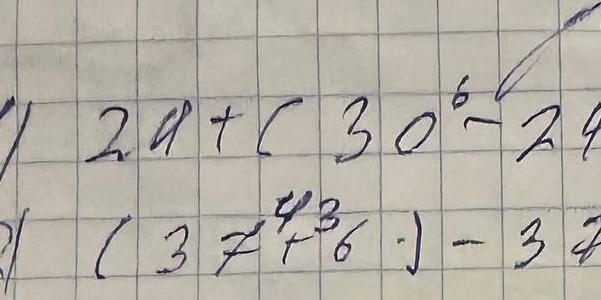 1) 24+(30-24
6
2) (37+6)-37
43